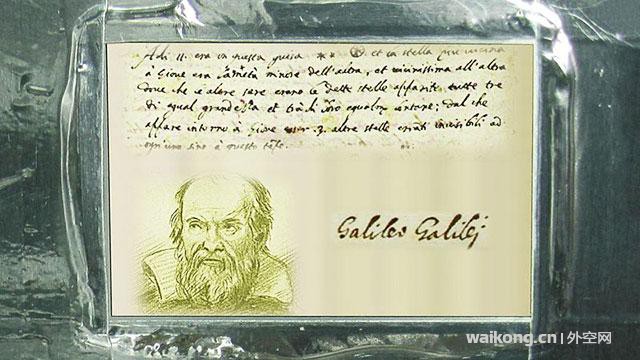 Adi 11. era in questa guisa ** et la stella più vicina
à Giove era la metà minore dell'altra, et vicinissima all'altra
dove che le altre sere erano le dette stelle apparite tutte tre
di egual grandezza et trà di loro egualm. lontane; dal che
appare intorno à Giove esser 3. altre stelle erranti invisibili ad
ogn'uno sino à questo tepo.
Galileo Galilej
waikong.cn | 外空网